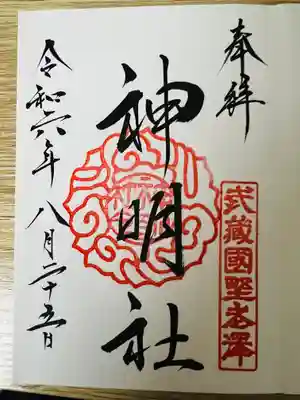 奉拝
武蔵國野老澤
神明社
令和六年八月二十五日